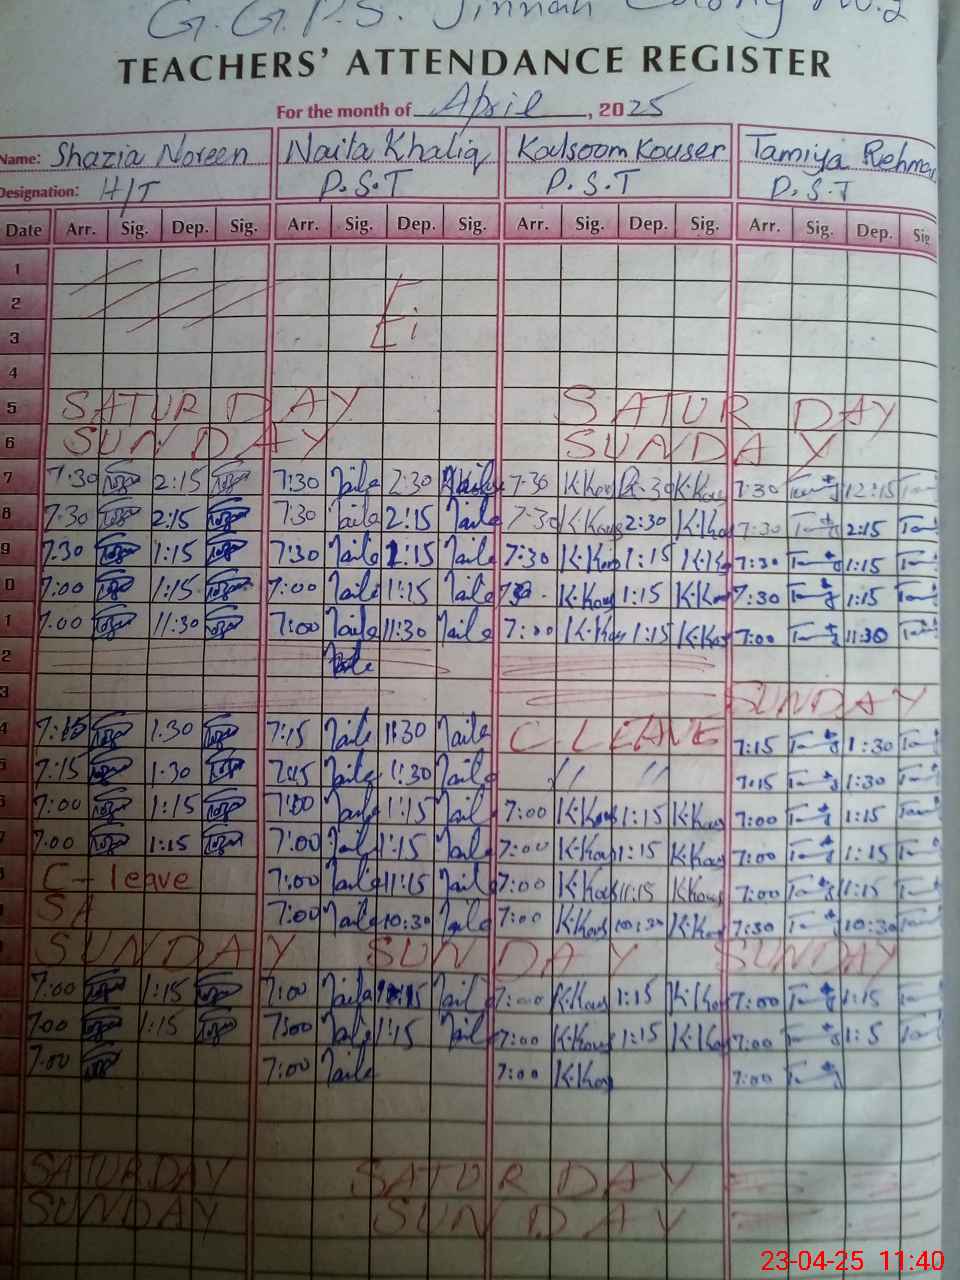 G.G.P.S. Jinnah Colony No.2
TEACHERS' ATTENDANCE REGISTER
For the month of April, 2025
Name: Shazia Noreen Naila Khaliq Kalsoom Kouser Tamiya Rehman
Designation: H/T P.S.T P.S.T P.S.T
Date Arr. Sig. Dep. Sig. Arr. Sig. Dep. Sig. Arr. Sig. Dep. Sig. Arr. Sig. Dep. Sig
1
2 Ei
3
4
5 SATURDAY SATURDAY
6 SUNDAY SUNDAY
7 7:30 2:15 7:30 Naila 2:30 7:30 K.Kous 7:30 12:15
8 7:30 2:15 7:30 Naila 2:15 Naila 7:30 K.Kous 2:30 K.Kous 7:30 2:15
9 7:30 1:15 7:30 Naila 1:15 Naila 7:30 K.Kous 1:15 K.K 7:30 1:15
0 7:00 1:15 7:00 Naila 1:15 Naila K.Kous 1:15 K.Kous 7:30 1:15
1 7:00 11:30 7:00 Naila 11:30 Naila 7:00 K.Kous 1:15 K.Kous 7:00 11:30
2 Naila
3 SUNDAY
4 7:15 1:30 7:15 Naila 1:30 Naila C LEAVE 7:15 1:30
5 7:15 1:30 7:15 Naila 1:30 Naila // // 7:15 1:30
6 7:00 1:15 7:00 Naila 1:15 Naila 7:00 K.Kous 1:15 K.Kous 7:00 1:15
7 7:00 1:15 7:00 Naila 1:15 Naila 7:00 K.Kous 1:15 K.Kous 7:00 1:15
C-leave 7:00 Naila 11:15 Naila 7:00 K.Kous 11:15 K.Kous 7:00 1:15
SA 7:00 Naila 10:30 Naila 7:00 K.Kous 10:30 K.Kous 7:30 10:30
SUNDAY SUNDAY SUNDAY
7:00 1:15 7:00 Naila 1:15 Naila 7:00 K.Kous 1:15 K.Kous 7:00 1:15
7:00 1:15 7:00 Naila 1:15 Naila 7:00 K.Kous 1:15 K.Kous 7:00 1:5
7:00 7:00 Naila 7:00 K.Kous 7:00
SATURDAY SATURDAY
SUNDAY SUNDAY
23-04-25 11:40